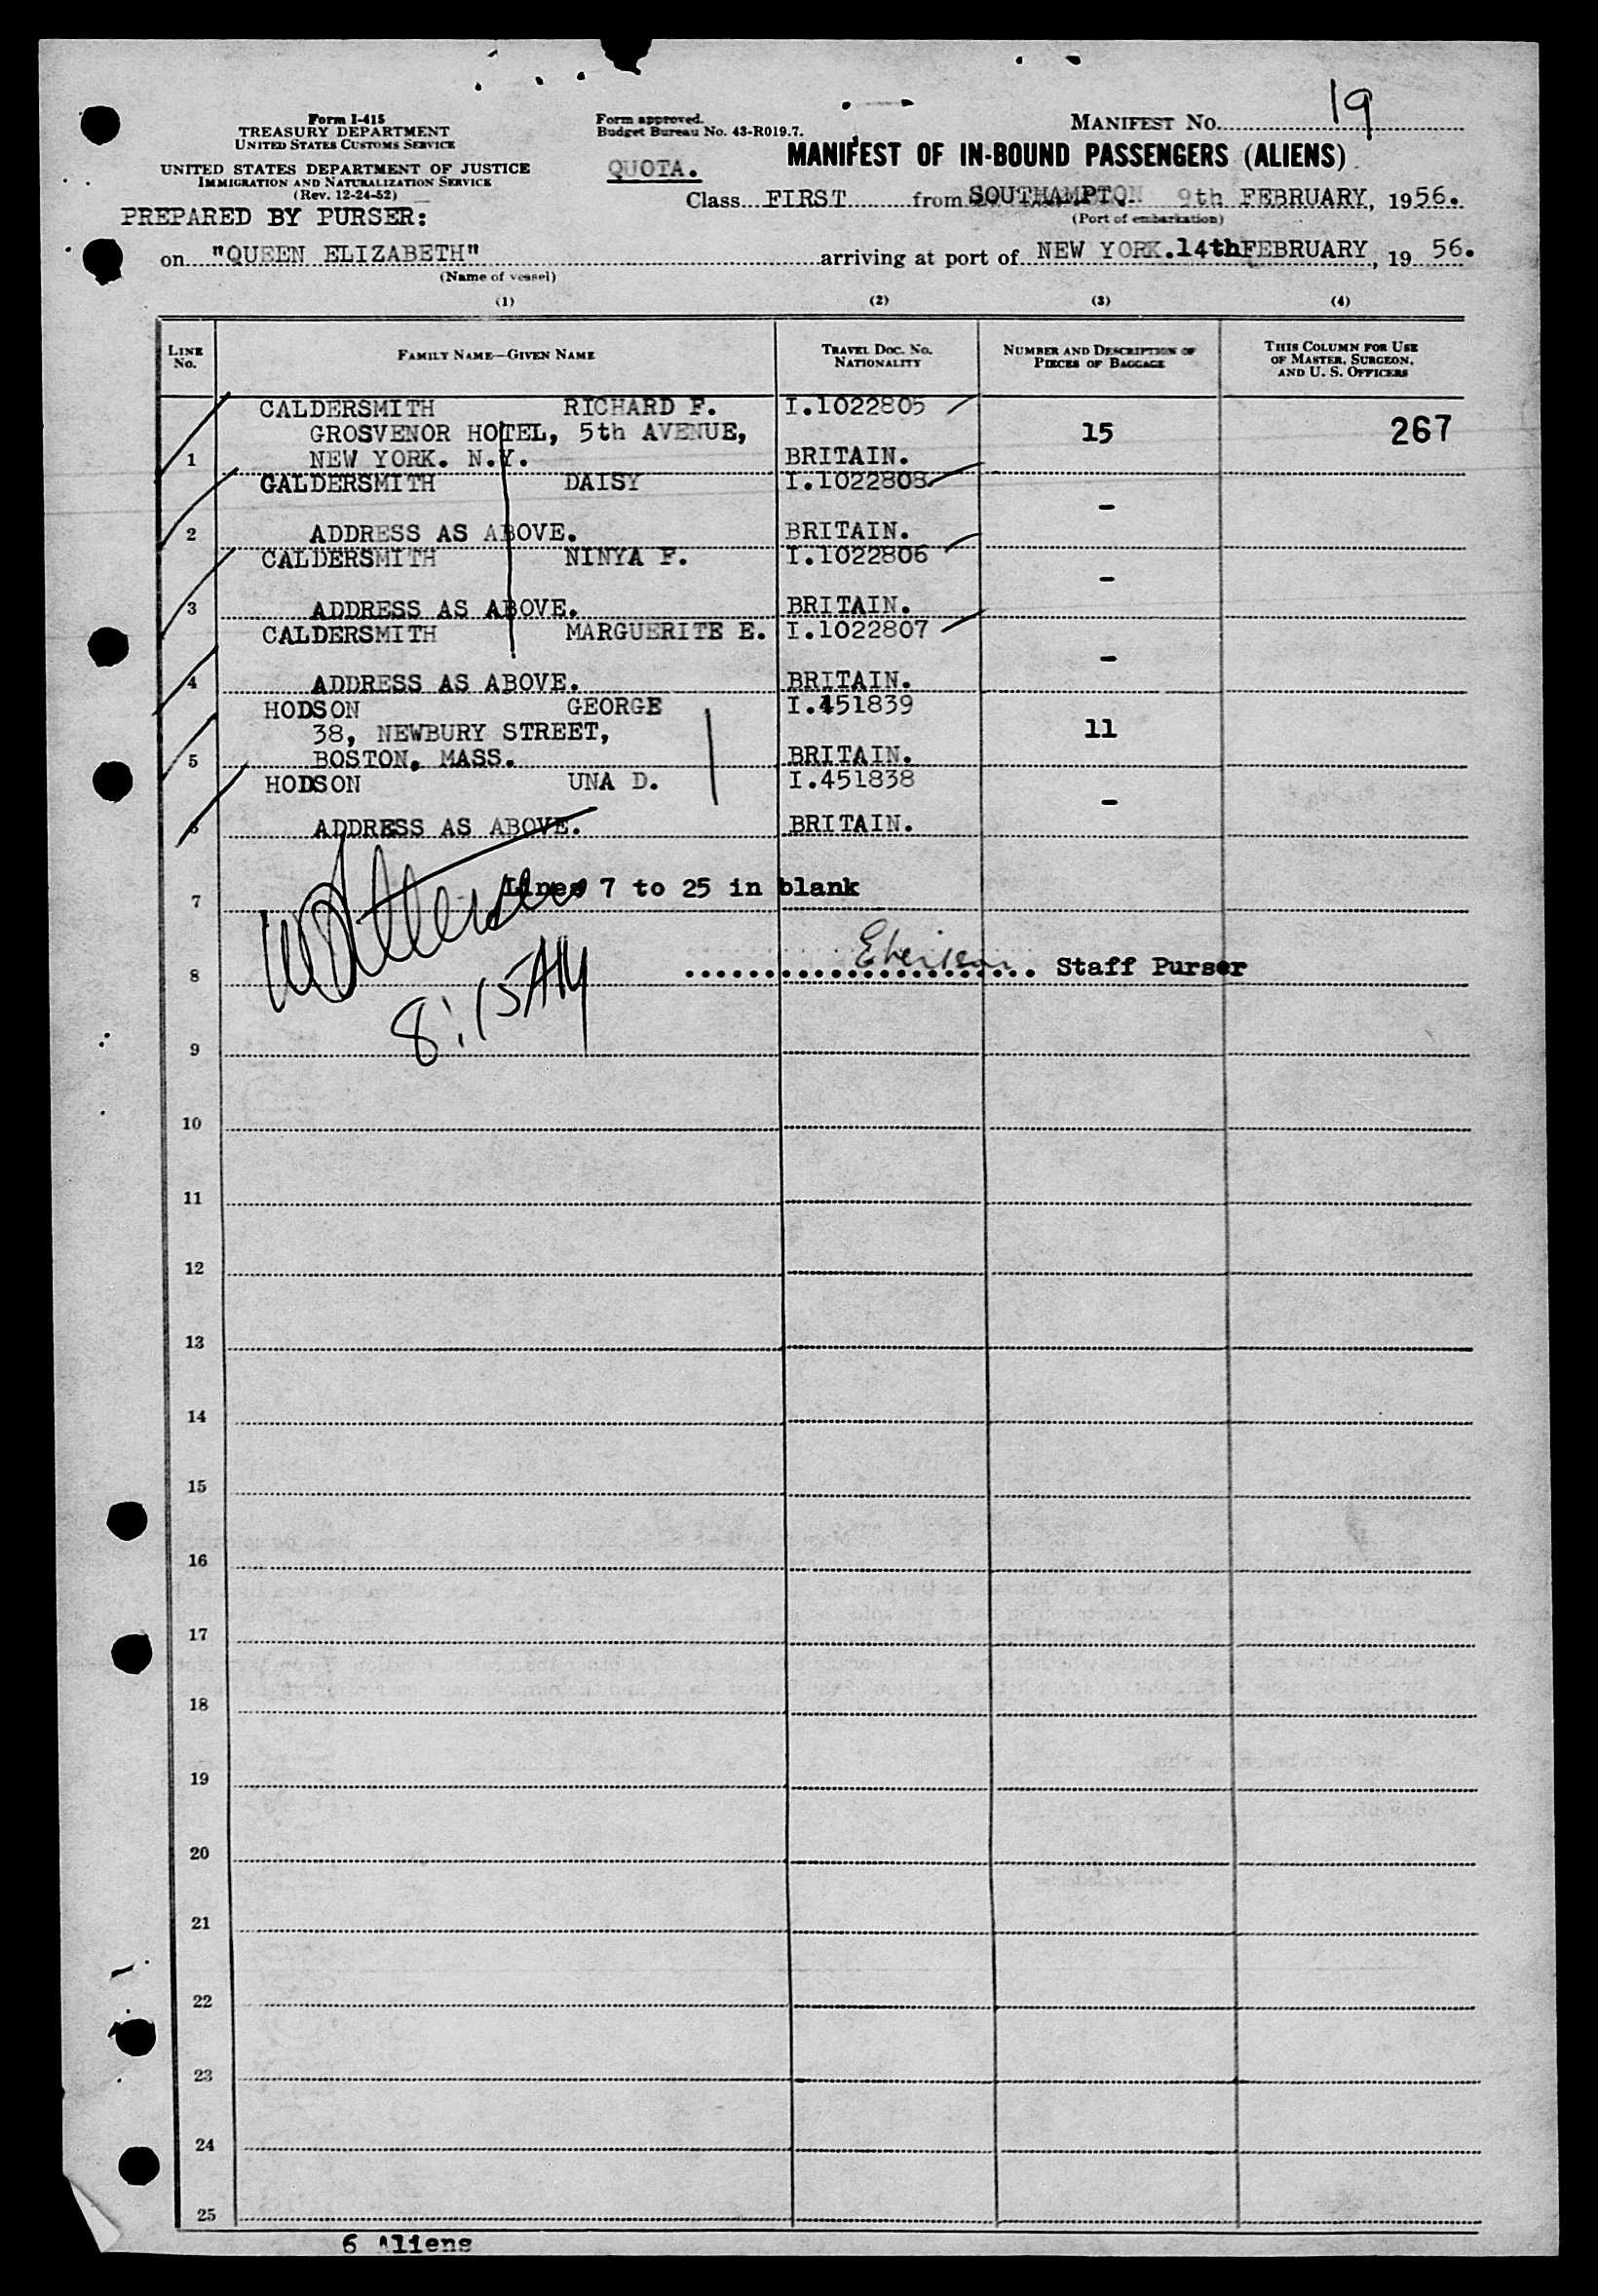 Form I-415
TREASURY DEPARTMENT
UNITED STATES CUSTOMS SERVICE
UNITED STATES DEPARTMENT OF JUSTICE
IMMIGRATION AND NATURALIZATION SERVICE
(Rev. 12-24-52)
PREPARED BY PURSER:
Form approved.
Budget Bureau No. 43-R019.7.
QUOTA.
MANIFEST No. 19
MANIFEST OF IN-BOUND PASSENGERS (ALIENS)
Class FIRST from SOUTHAMPTON 9th FEBRUARY, 1956.
(Port of embarkation)
on "QUEEN ELIZABETH" arriving at port of NEW YORK. 14th FEBRUARY, 19 56.
(Name of vessel)
(1) (2) (3) (4)
LINE No. FAMILY NAME—GIVEN NAME TRAVEL DOC. No. NATIONALITY NUMBER AND DESCRIPTION OF PIECES OF BAGGAGE THIS COLUMN FOR USE OF MASTER, SURGEON, AND U. S. OFFICERS
CALDERSMITH RICHARD F. I.1022805
GROSVENOR HOTEL, 5th AVENUE, 15 267
1 NEW YORK. N.Y. BRITAIN.
CALDERSMITH DAISY I.1022808
-
2 ADDRESS AS ABOVE. BRITAIN.
CALDERSMITH NINYA F. I.1022806
-
3 ADDRESS AS ABOVE. BRITAIN.
CALDERSMITH MARGUERITE E. I.1022807
-
4 ADDRESS AS ABOVE. BRITAIN.
HODSON GEORGE I.451839
38, NEWBURY STREET, 11
5 BOSTON, MASS. BRITAIN.
HODSON UNA D. I.451838
-
6 ADDRESS AS ABOVE. BRITAIN.
7 Lines 7 to 25 in blank
8 Staff Purser
8:15AM
9
10
11
12
13
14
15
16
17
18
19
20
21
22
23
24
25
6 Aliens